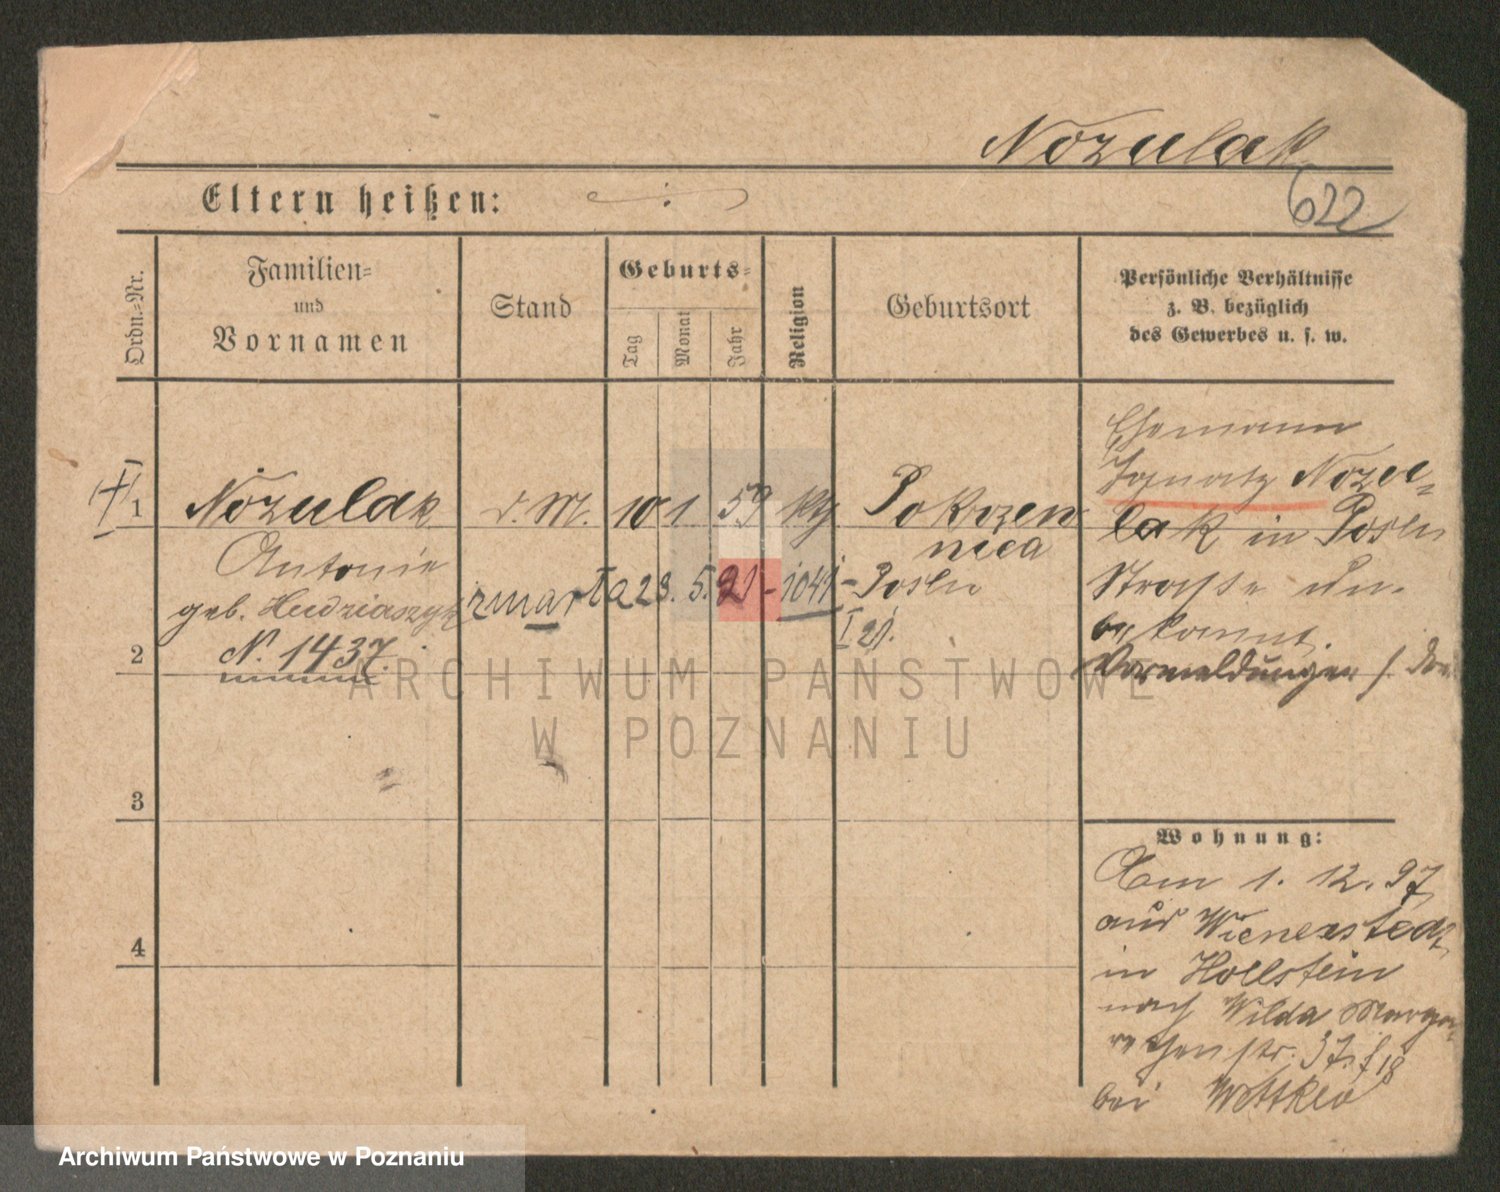 Nozulak
622
Eltern heißen:
Ordn.-Nr.
Familien-
und
Vornamen
Stand
Geburts-
Tag
Monat
Jahr
Religion
Geburtsort
Persönliche Verhältnisse
z. B. bezüglich
des Gewerbes u. s. w.
Ehemann
Ignatz Nozu-
lak in Posen
Straße un-
bekannt.
Vormeldungen
1
Nozulak
d. M.
10 1 59
Pokrzew
nica
Antonie
geb. Hudziaszyk
zmarła 28. 5. 21 - 1041 - Posen
I 21.
N. 1437.
2
3
4
Wohnung:
Am 1. 12. 97
aus Wienerstedt
in Hollstein
nach Wilda Marga-
rethenstr. 37
bei
ARCHIWUM PAŃSTWOWE
W POZNANIU
Archiwum Państwowe w Poznaniu